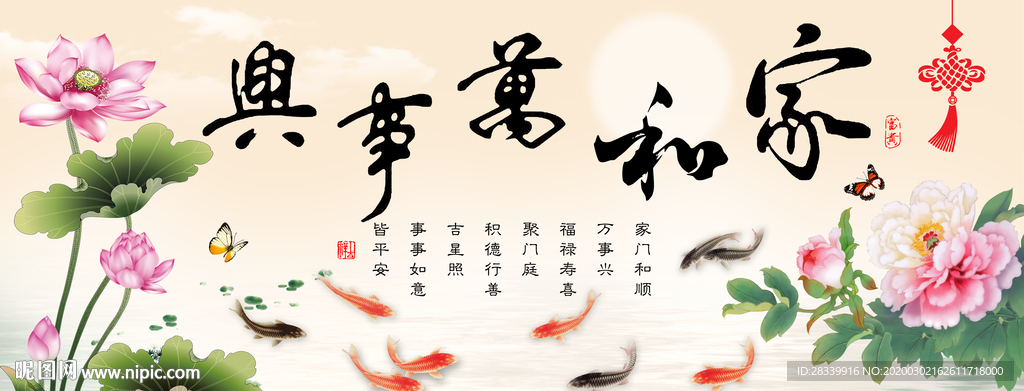 家和萬事興
家门和顺
万事兴
福禄寿喜
聚门庭
积德行善
吉星照
事事如意
皆平安
昵图网 www.nipic.com
ID:28339916 NO:20200302162611718000